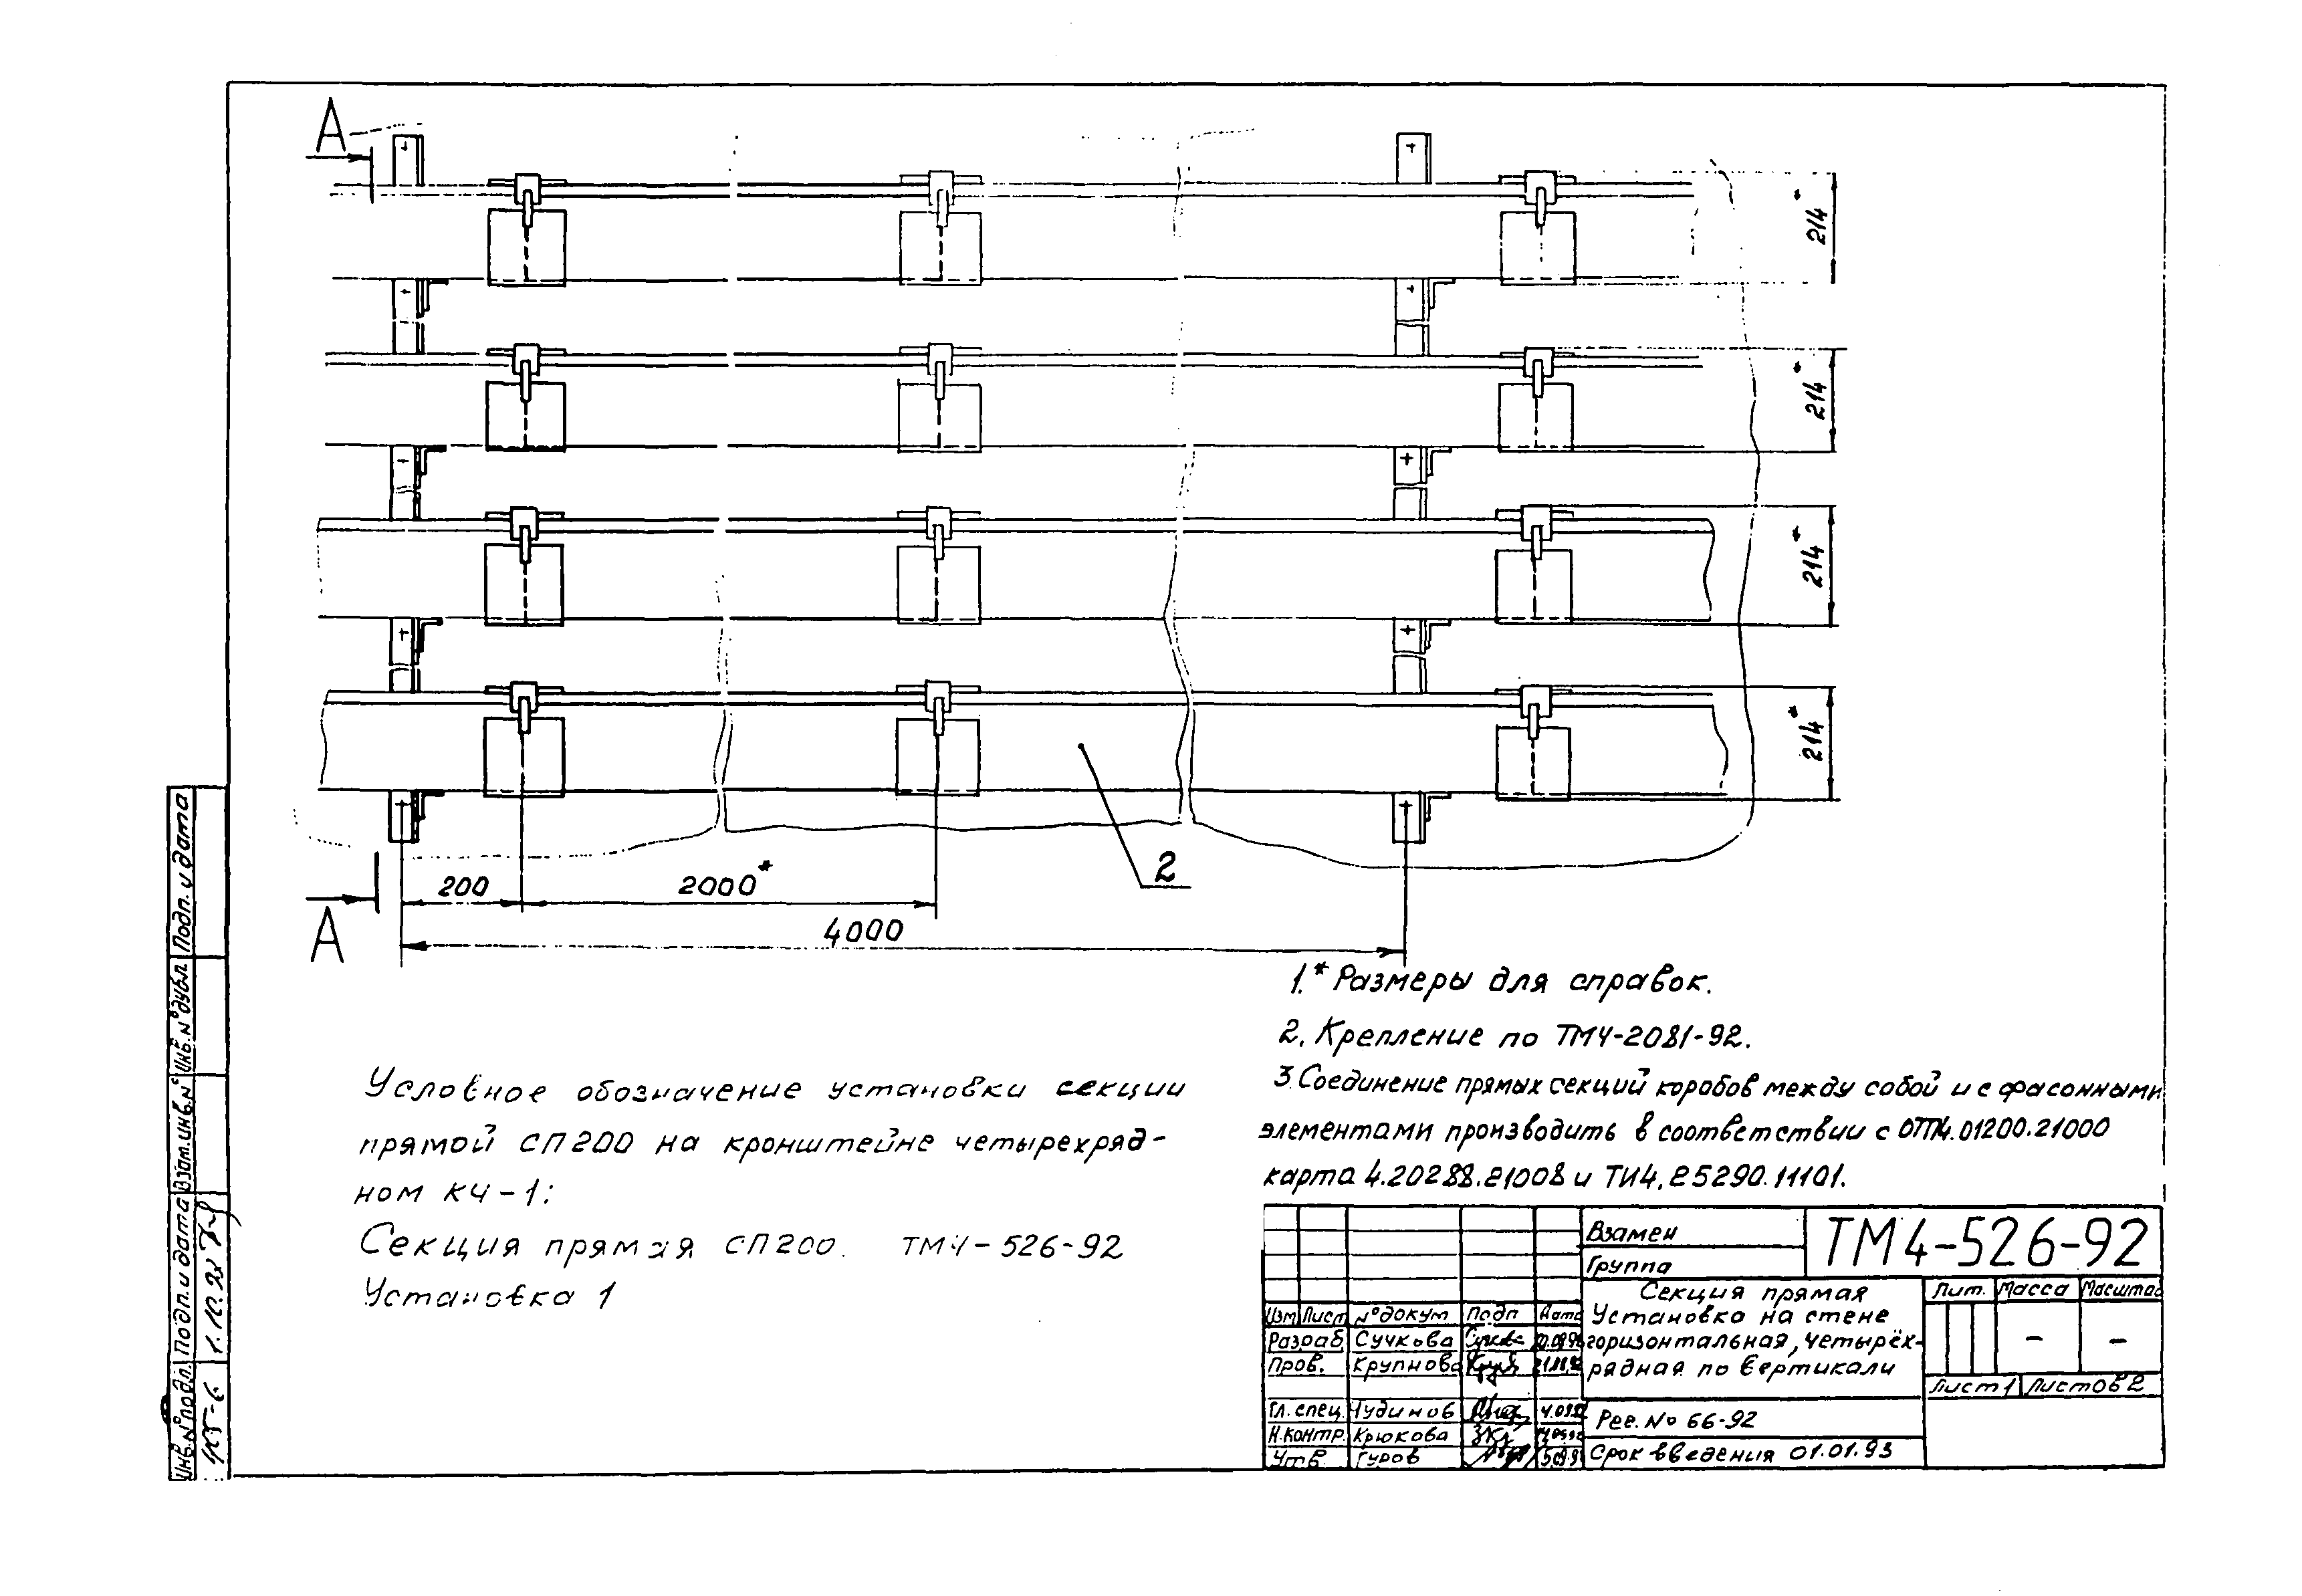 А
214*
214*
214*
214*
2
200
2000*
4000
А
1.* Размеры для справок.
2. Крепление по ТМ4-2081-92.
3. Соединение прямых секций коробов между собой и с фасонными
элементами производить в соответствии с ОТТ4.01200.21000
карта 4.20288.21008 и ТИ4.25290.11101.
Условное обозначение установки секции
прямой СП200 на кронштейне четырехряд-
ном КЧ-1:
Секция прямая СП200. ТМ4-526-92
Установка 1
Взамен
Группа
ТМ4-526-92
Секция прямая
Установка на стене
горизонтальная, четырёх-
рядная по вертикали
Лит. Масса Масштаб
- -
Лист 1 Листов 2
Изм Лист № докум Подп Дата
Разраб. Сучкова
Пров. Крупнова
Гл. спец. Чудинов
Н.контр. Крюкова
Утв. Гуров
Рег. № 66-92
Срок введения 01.01.93
Подп. и дата
Инв. № дубл.
Взам. инв. №
Подп. и дата
Инв. № подл.